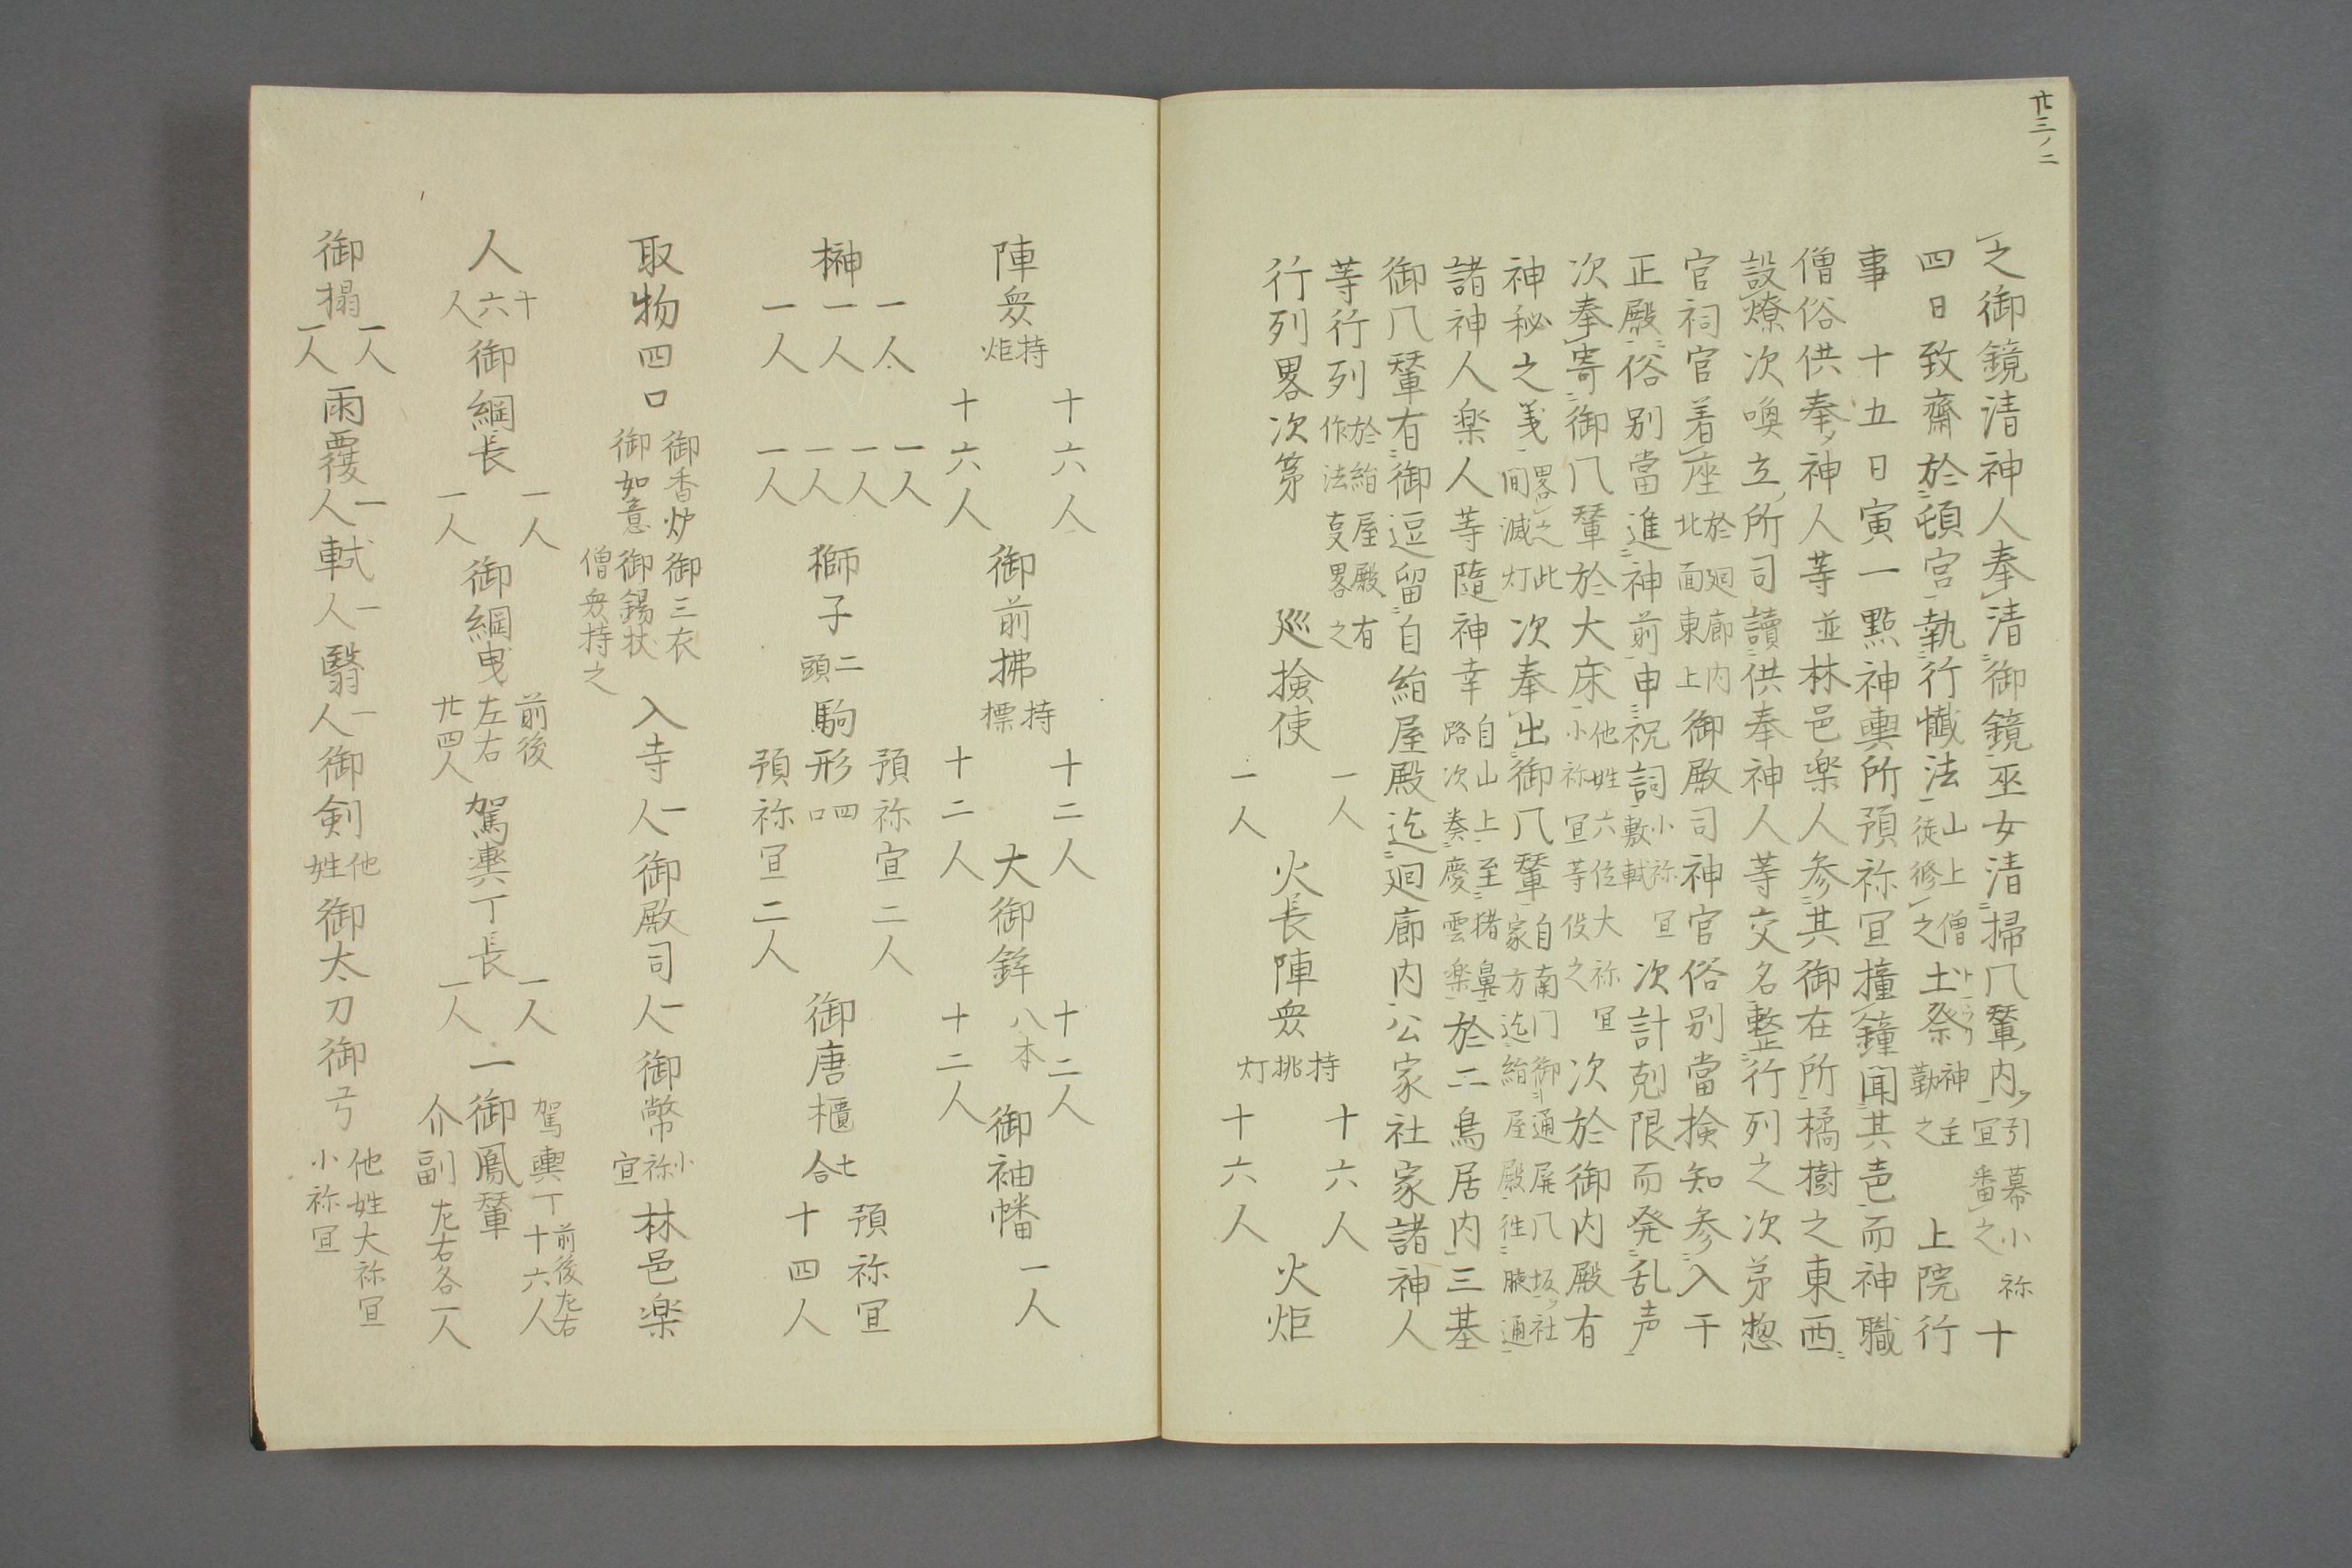 廿三ノ二
之御鏡清神人奉清御鏡巫女清掃八輦内引幕小祢宜番之十
四日致齋於頓宮執行懺法山上僧徒修之土祭神主勤之上院行
事 十五日寅一點神輿所預祢宜撞鐘聞其声而神職
僧俗供奉神人等並林邑楽人参其御在所橘樹之東西
設燎次喚立所司讀供奉神人等交名整行列之次第惣
官祠官着座於廻廊内北面東上御殿司神官俗別當撿知参入干
正殿俗別當進神前申祝詞小祢宜敷軾次計剋限而発乱声
次奉寄御八輦於大床他姓六位大祢宜小祢宜等役之次於御内殿有
神秘之義畧之此間滅灯次奉出御八輦自南门御通屏八坂社家方迄絈屋殿徃腋通
諸神人楽人等隨神幸自山上至猪鼻路次奏慶雲楽於二鳥居内三基
御八輦有御逗留自絈屋殿迄廻廊内公家社家諸神人
等行列於絈屋殿有作法㕝畧之
行列畧次第 巡撿使 一人 一人 火長陣衆持挑灯 十六人 十六人 火炬
陣衆持炬 十六人 十六人 御前拂持標 十二人 十二人 大御鉾八本 十二人 十二人 御袖幡 一人
榊 一人 一人 一人 一人 一人 一人 一人 獅子二頭 駒形四口 預祢宜二人 預祢宜二人 御唐櫃七合 預祢宜 十四人
取物四口 御香炉 御三衣 御如意 御錫杖 僧衆持之 入寺一人 御殿司一人 御幣小祢宜 林邑楽
人十六人 御綱長 一人 一人 御綱曵 前後左右廿四人 駕輿丁長 一人 一人 一御鳳輦 駕輿丁前後左右十六人 介副左右各一人
御搨 一人 一人 雨覆一人 軾一人 翳一人 御剣他姓 御太刀 御弓 他姓大祢宜 小祢宜